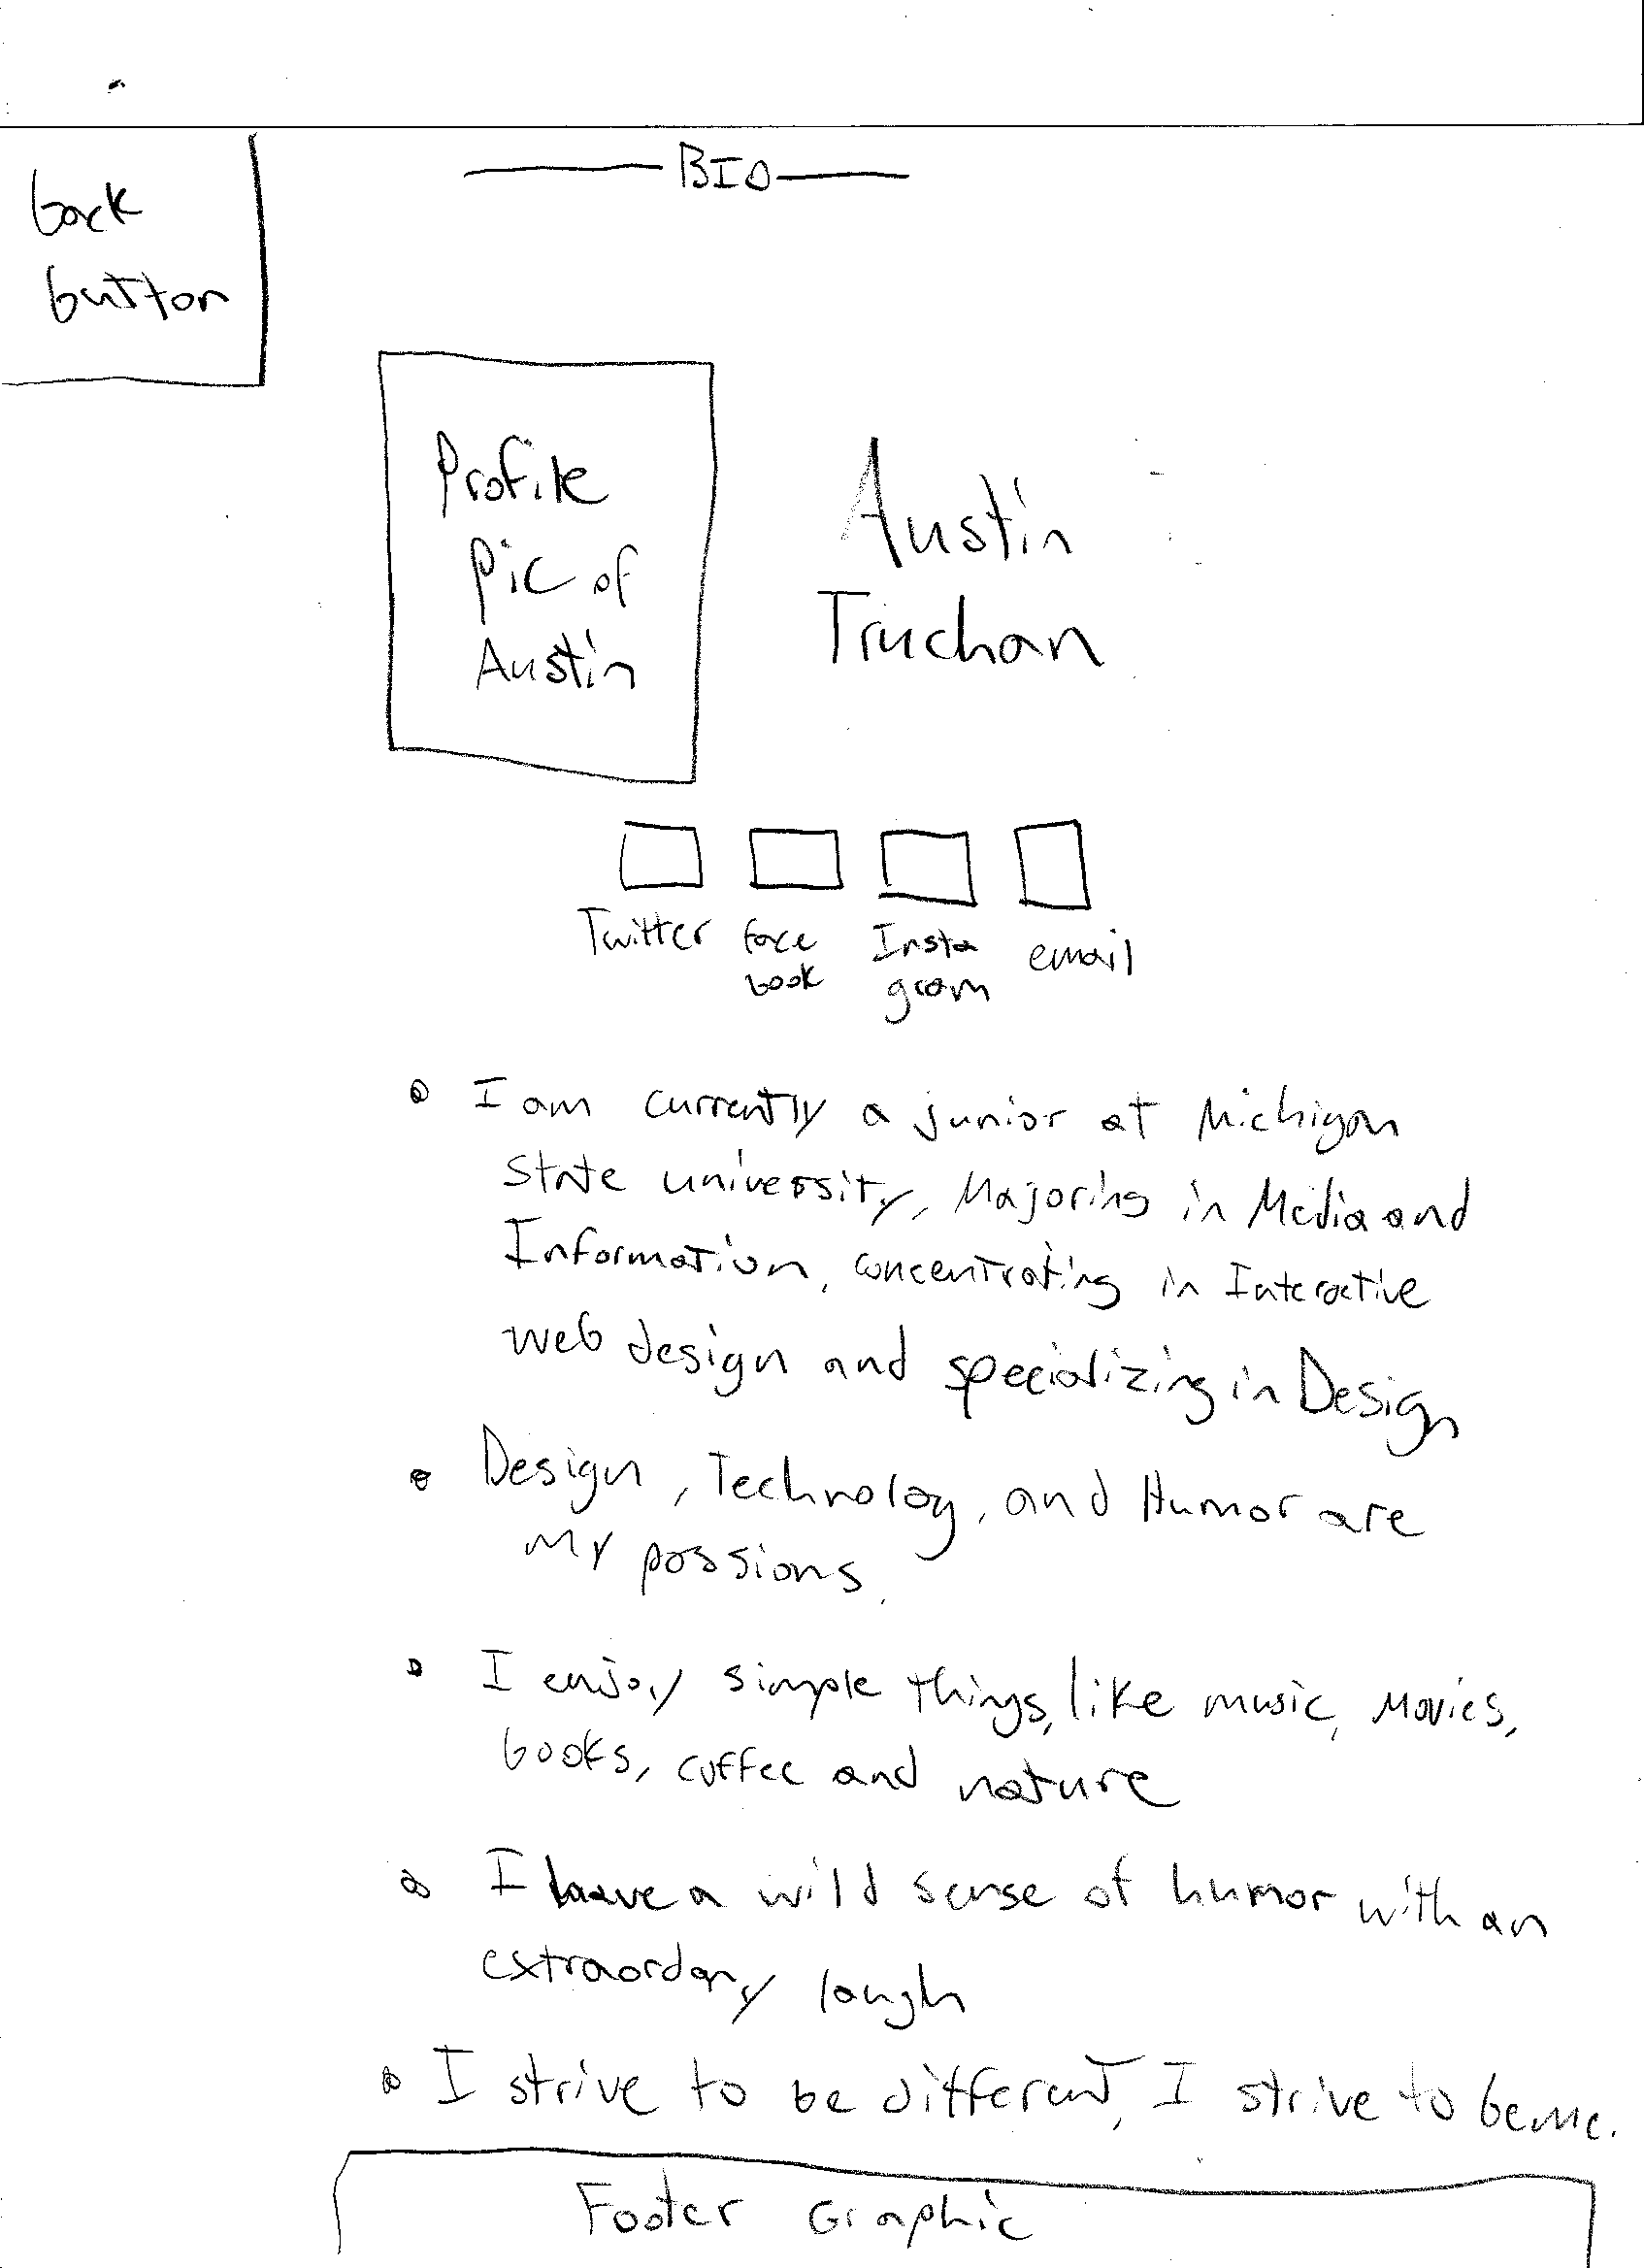 BIO
back
button
Profile
Pic of
Austin
Austin
Truchan
Twitter face book Insta gram email
• I am currently a junior at Michigan
State university, Majoring in Media and
Information, concentrating in Interactive
web design and specializing in Design
• Design, Technology, and Humor are
my passions.
• I enjoy simple things, like music, movies,
books, coffee and nature
• I have a wild sense of humor with an
extraordany laugh
• I strive to be different, I strive to be me.
Footer Graphic